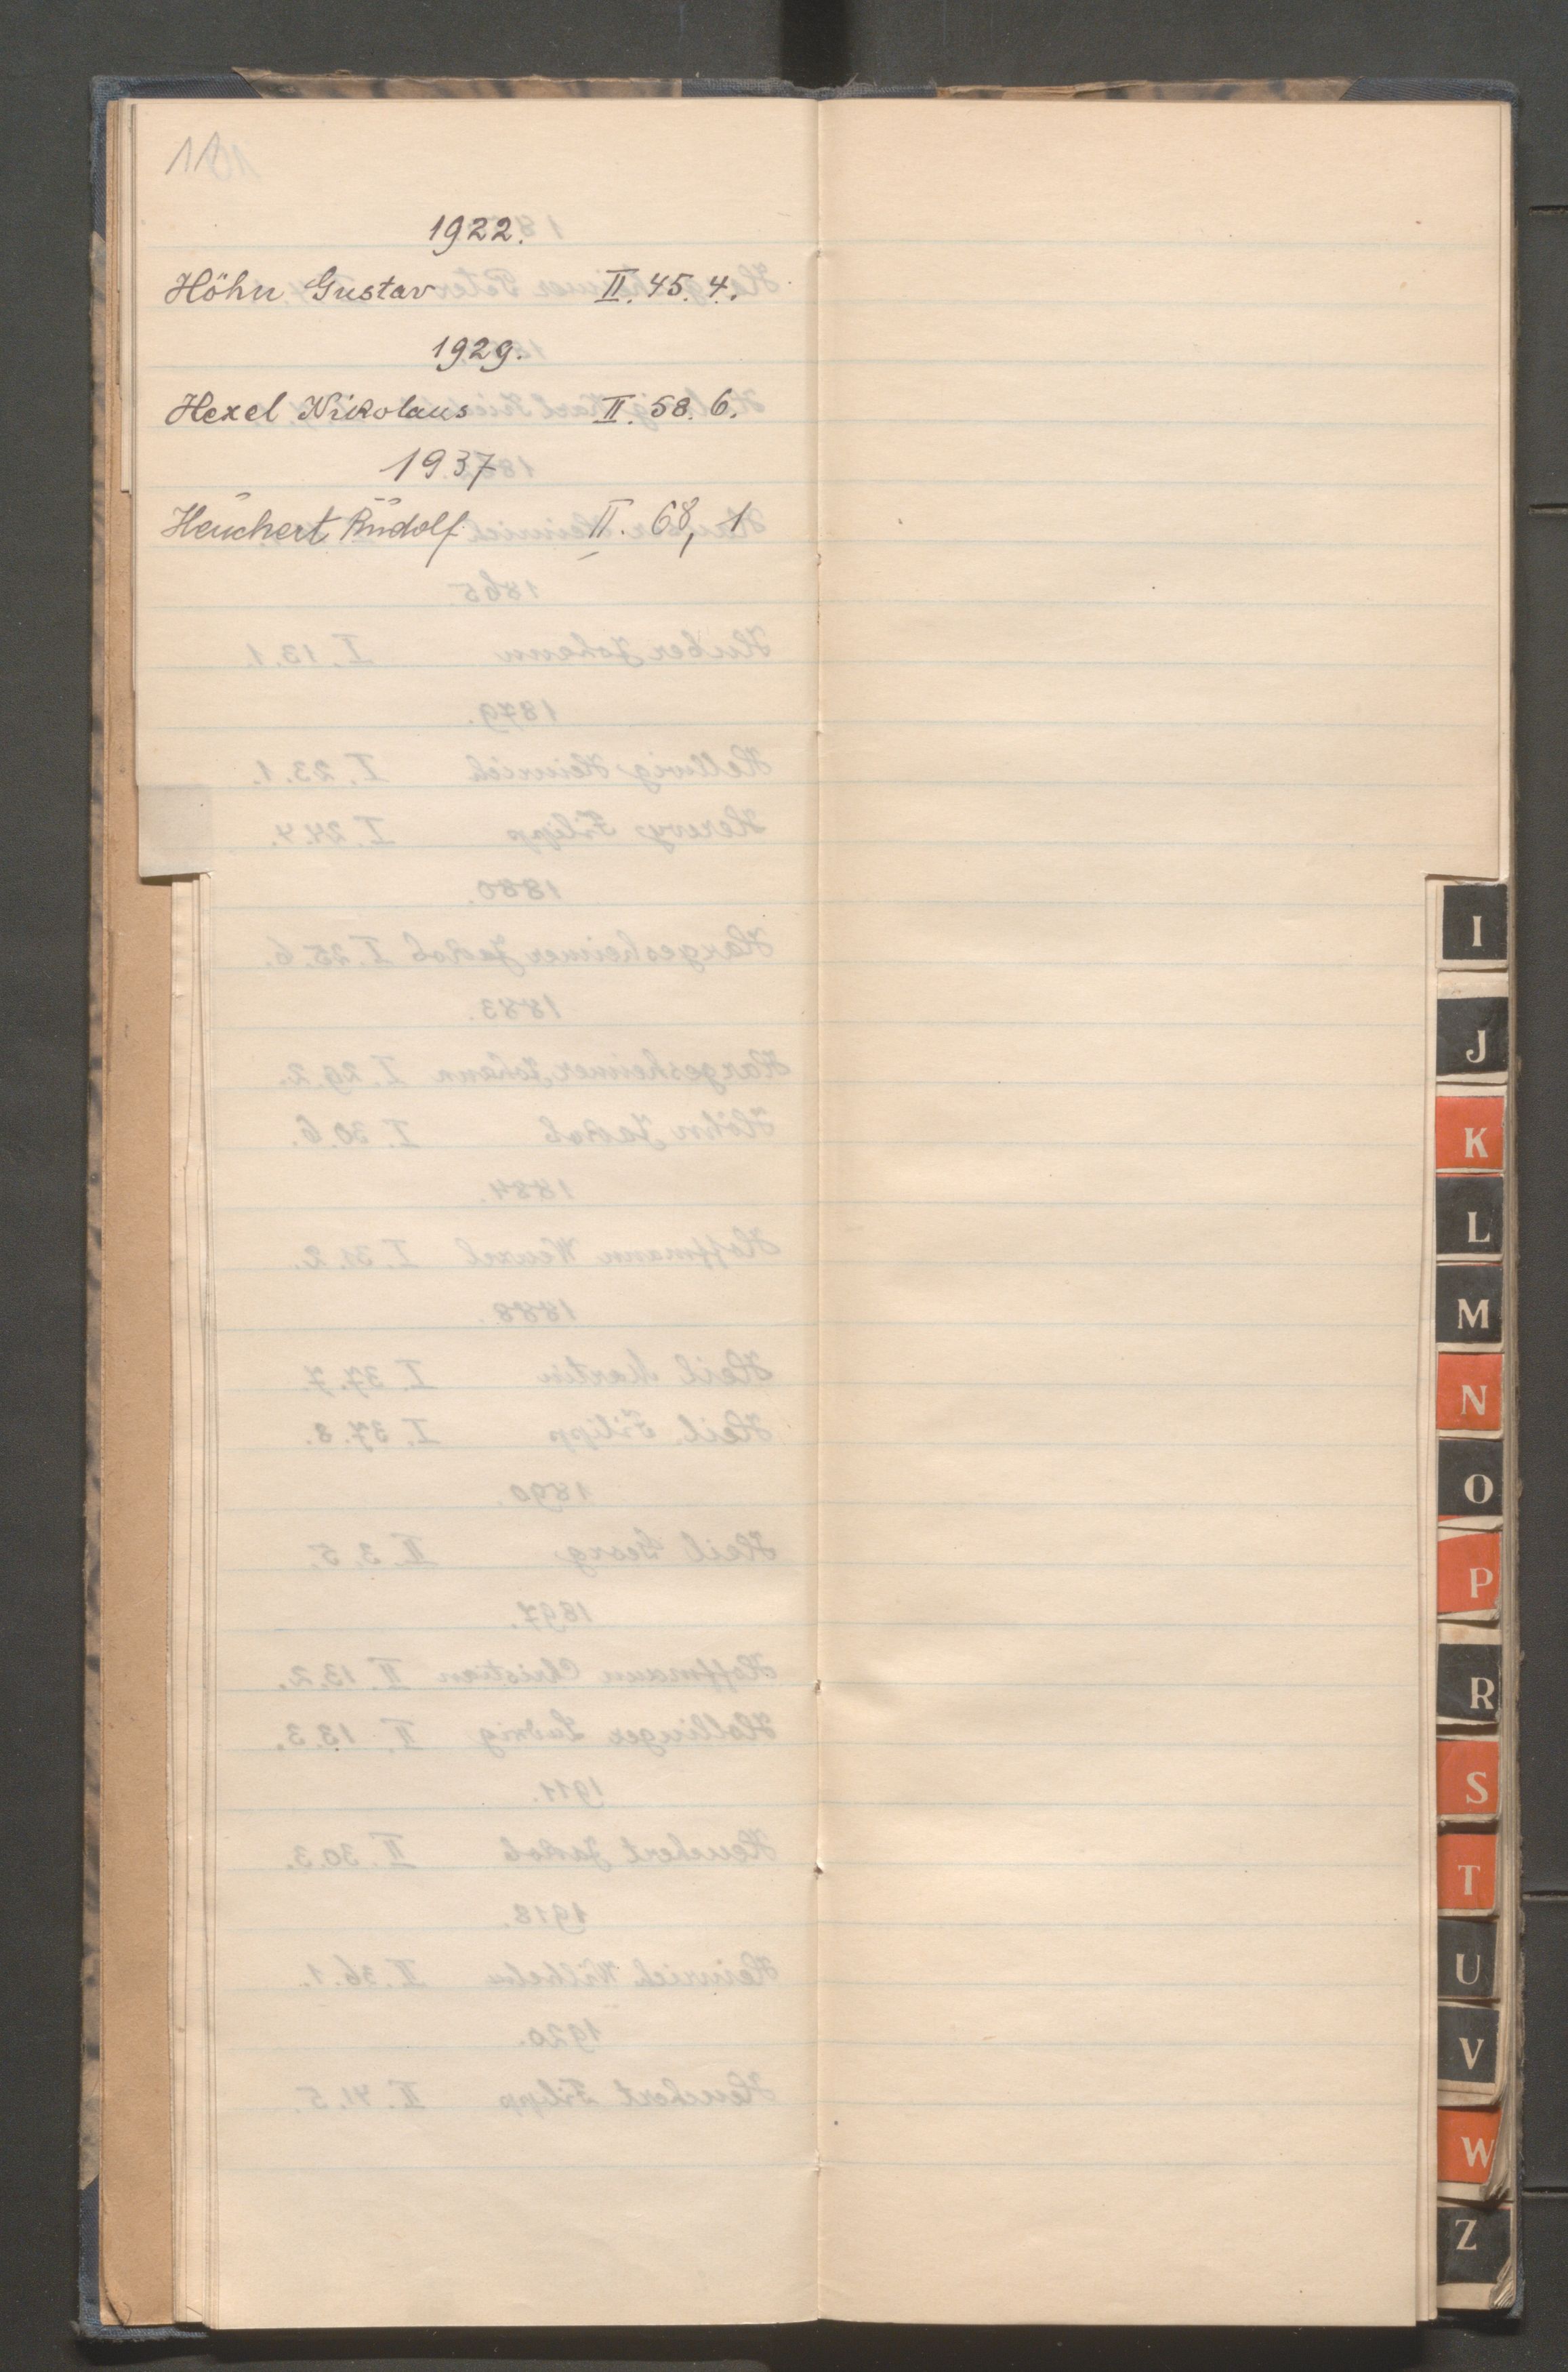 11
1922.
Höhn Gustav II. 45. 4.
1929.
Hexel Nikolaus II. 58. 6.
1937
Heuchert Rudolf II. 68, 1
I
J
K
L
M
N
O
P
R
S
T
U
V
W
Z